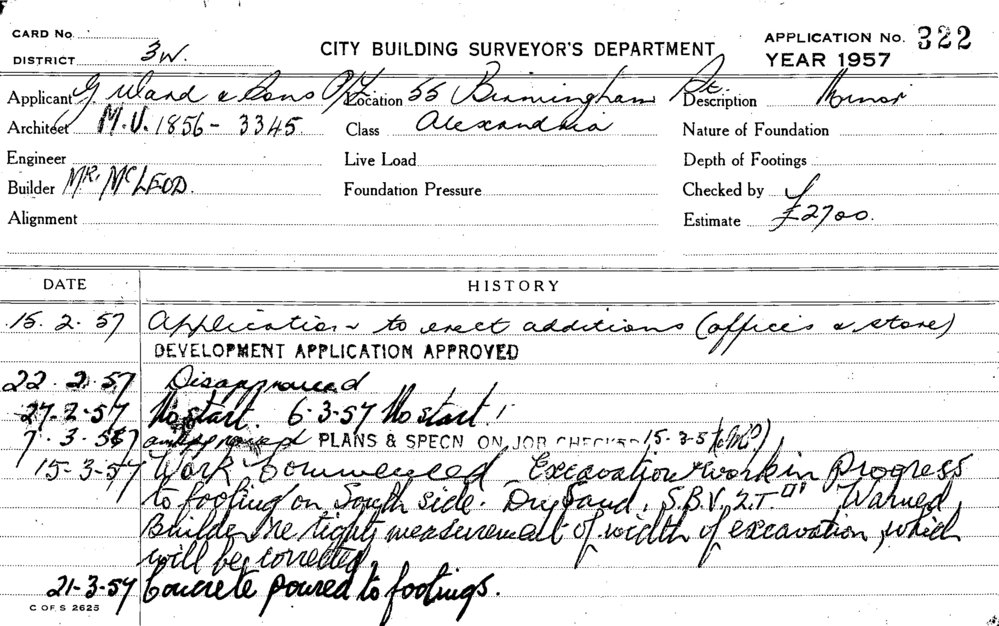 CARD No.
DISTRICT 3W.
CITY BUILDING SURVEYOR'S DEPARTMENT
APPLICATION No. 322
YEAR 1957
Applicant & Sons P/L Location 55 Birmingham St. Description Minor
Architect M.U. 1856 - 3345 Class Alexandria Nature of Foundation
Engineer Live Load Depth of Footings
Builder MR. McLEOD. Foundation Pressure Checked by
Alignment Estimate £2700.
DATE HISTORY
15. 2. 57 Application to erect additions (offices & store)
DEVELOPMENT APPLICATION APPROVED
22. 2. 57 Disapproved
27-2-57 No start. 6-3-57 No start!
7. 3. 57 approved PLANS & SPECN ON JOB CHECKED 15-3-57
15-3-57 Work Commenced Excavation work in progress
to footing on South side. Dry Sand, S.B.V. 2.T. Warned
Builder re right measurement of width of excavation, which
will be corrected.
21-3-57 Concrete poured to footings.
C OF S 2625